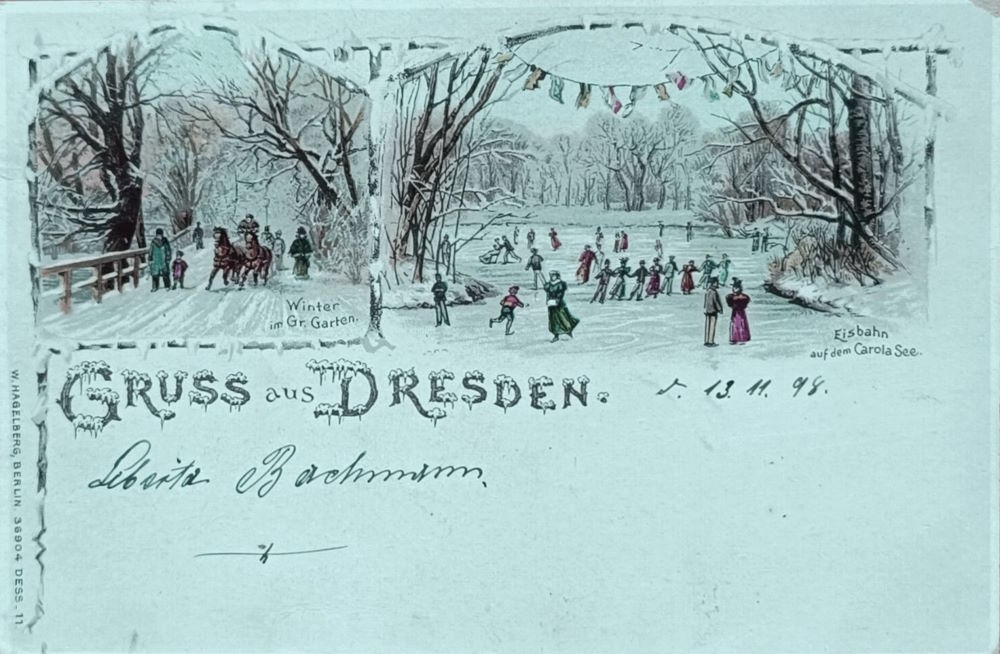 Winter
im Gr. Garten.
Eisbahn
auf dem Carola See.
GRUSS aus DRESDEN.
d. 13. 11. 98.
Bachmann.
W. HAGELBERG, BERLIN. 36904 DESS-11